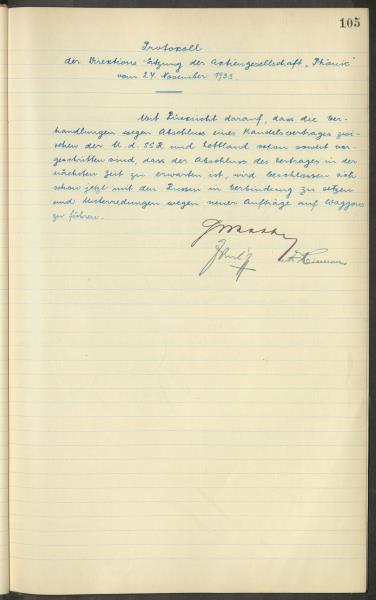 105
Protokoll
der Direktions-Sitzung der Aktiengesellschaft „Phönix"
vom 24. November 1933
Mit Rücksicht darauf, dass die Ver-
handlungen wegen Abschluss eines Handelsvertrages zwi-
schen der U.d.SSR und Lettland schon soweit vor-
geschritten sind, dass der Abschluss des Vertrages in der
nächsten Zeit zu erwarten ist, wird beschlossen sich
schon jetzt mit den Russen in Verbindung zu setzen
und Unterredungen wegen neuer Aufträge auf Waggons
zu führen.